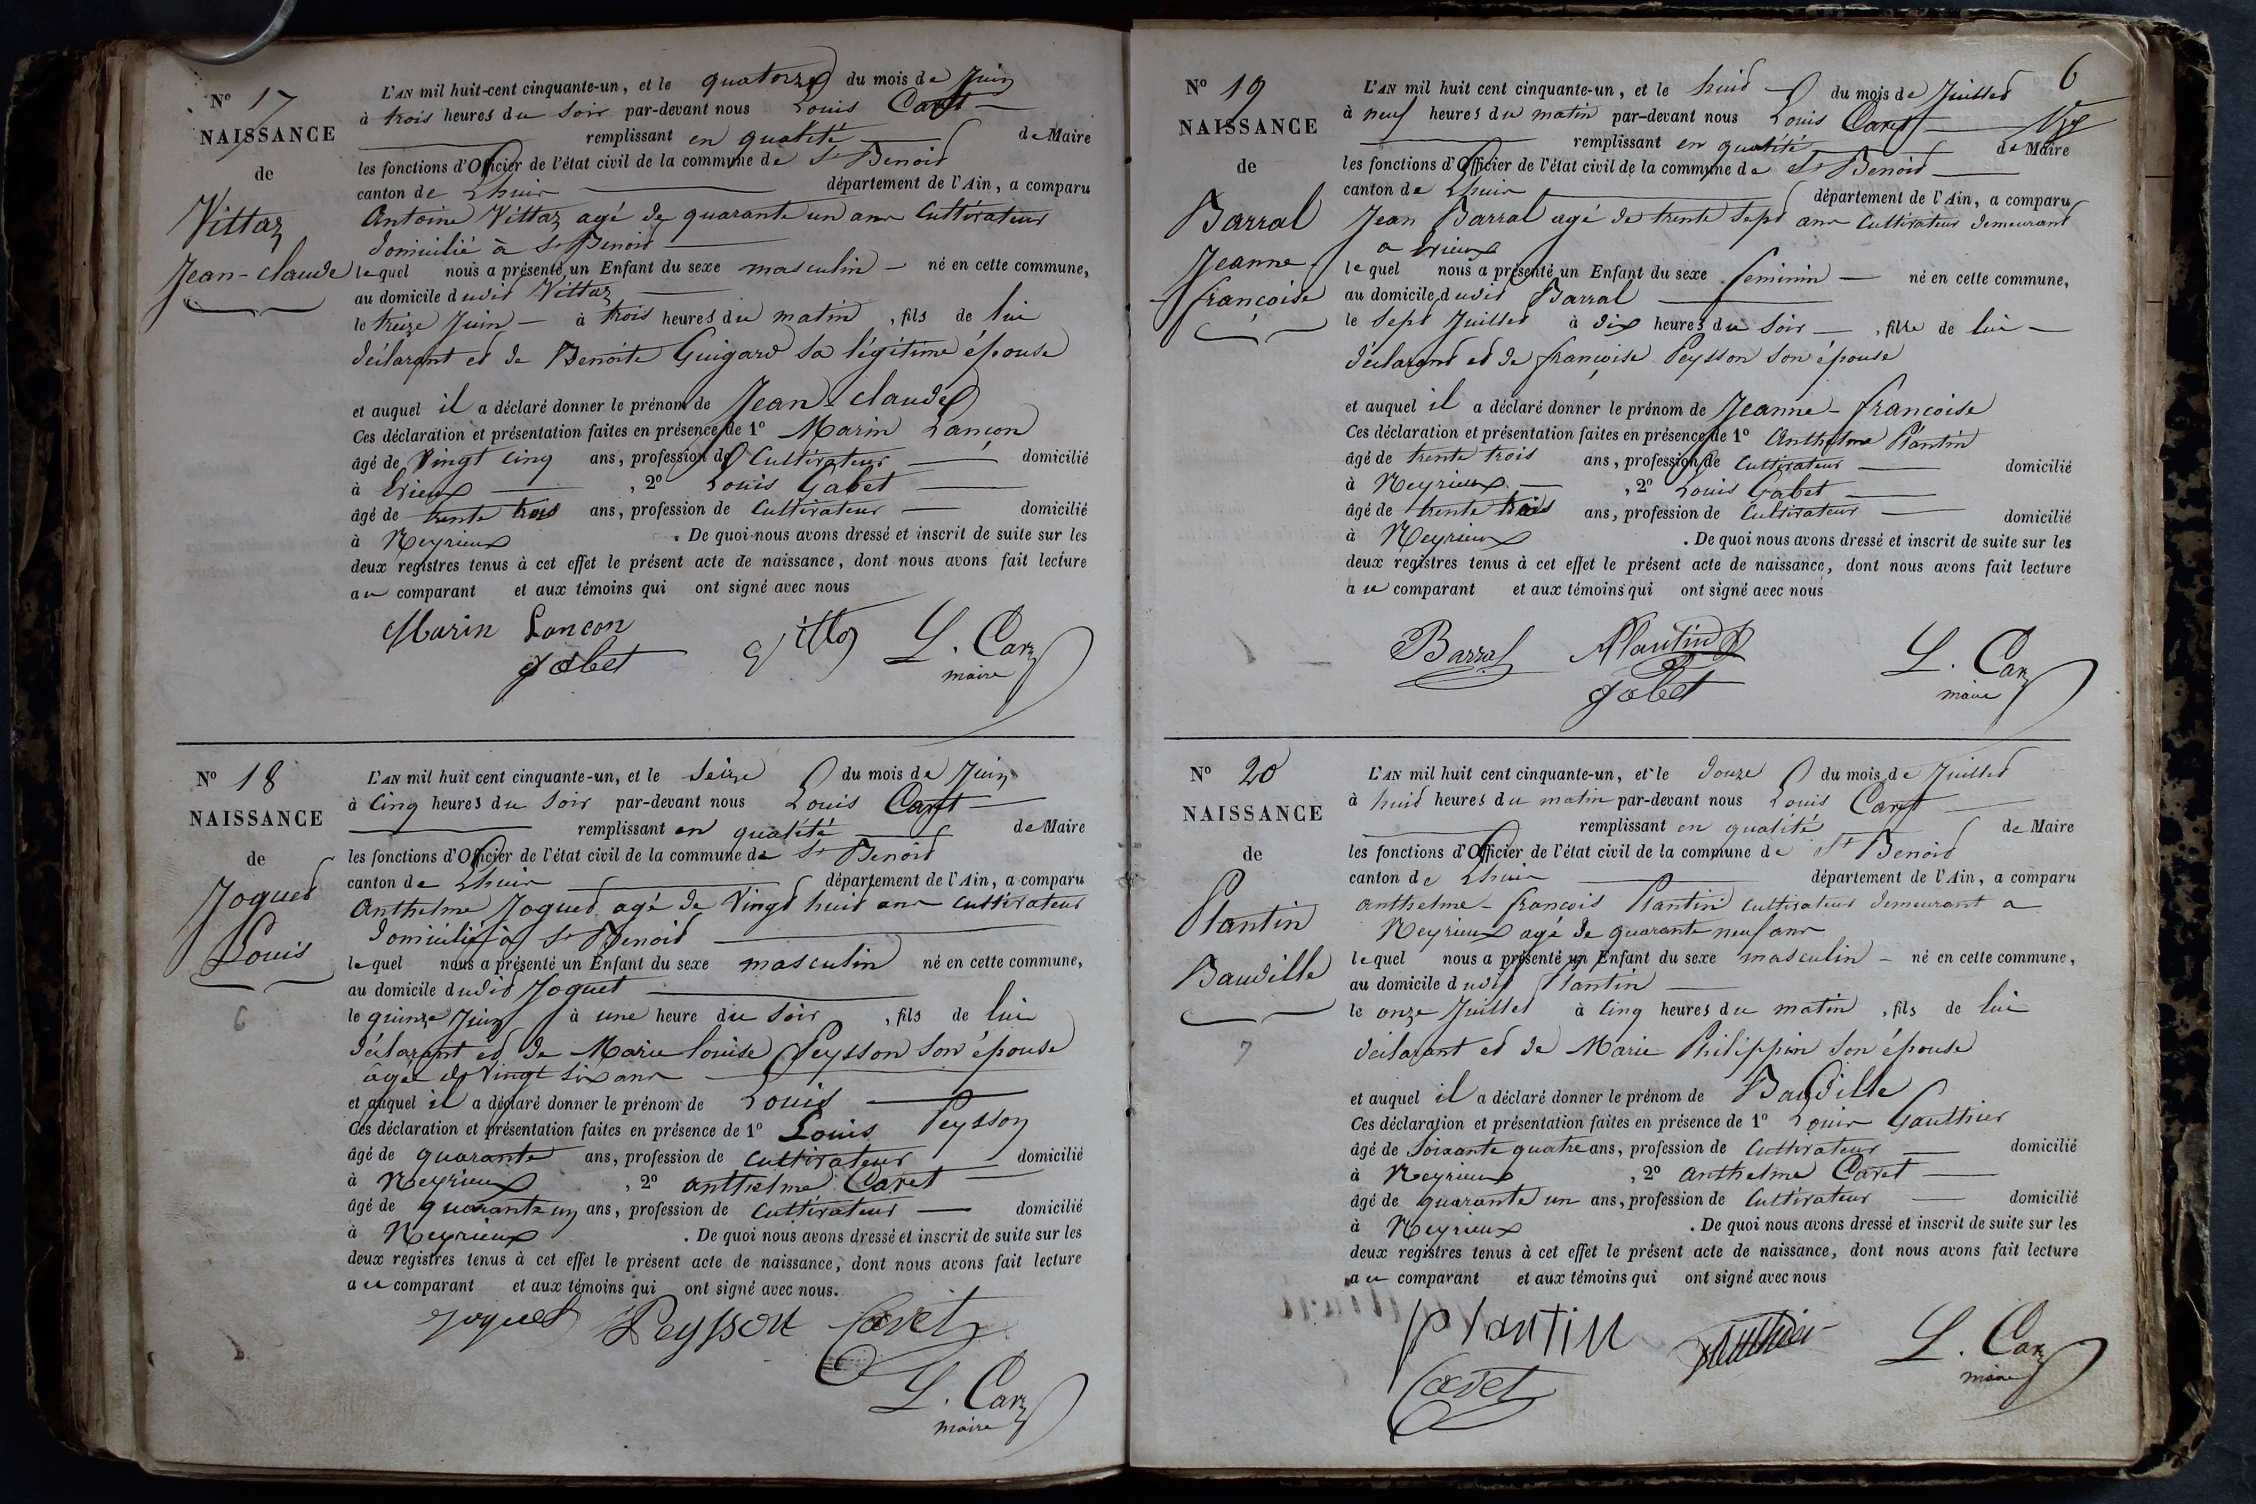 N° 17
NAISSANCE
de
Vittaz
Jean-claude
L'AN mil huit-cent cinquante-un, et le quatorze du mois de Juin
à trois heures du soir par-devant nous Louis
remplissant en qualité de Maire
les fonctions d'Officier de l'état civil de la commune de St Benoit
canton de Lhuis département de l'Ain, a comparu
Antoine Vittaz agé de quarante un ans Cultivateur
domicilié à St Benoit
lequel nous a présenté un Enfant du sexe masculin né en cette commune,
au domicile dudit Vittaz
le treize Juin à trois heures du matin, fils de lui
déclarant et de Benoite Guigard sa légitime épouse
et auquel il a déclaré donner le prénom de Jean-claude
Ces déclaration et présentation faites en présence de 1° Marin Lançon
âgé de Vingt cinq ans, profession de Cultivateur domicilié
à Evieux, 2° Louis Gabet
âgé de trente trois ans, profession de Cultivateur domicilié
à Neyrieux. De quoi nous avons dressé et inscrit de suite sur les
deux registres tenus à cet effet le présent acte de naissance, dont nous avons fait lecture
au comparant et aux témoins qui ont signé avec nous
Marin Lancon
gabet
L. Carz
maire
N° 18
NAISSANCE
de
Joguet
Louis
6
L'AN mil huit cent cinquante-un, et le seize du mois de Juin
à Cinq heures du soir par-devant nous Louis
remplissant en qualité de Maire
les fonctions d'Officier de l'état civil de la commune de St Benoit
canton de Lhuis département de l'Ain, a comparu
Anthelme Joguet agé de Vingt huit ans cultivateur
domicilié à St Benoit
lequel nous a présenté un Enfant du sexe masculin né en cette commune,
au domicile dudit Joguet
le quinze Juin à une heure du soir, fils de lui
déclarant et de Marie louise Peysson son épouse
âgée de Vingt six ans
et auquel il a déclaré donner le prénom de Louis
Ces déclaration et présentation faites en présence de 1° Louis Peysson
âgé de quarante ans, profession de cultivateur domicilié
à Neyrieux, 2° anthelme Cavet
âgé de quarante un ans, profession de Cultivateur domicilié
à Neyrieux. De quoi nous avons dressé et inscrit de suite sur les
deux registres tenus à cet effet le présent acte de naissance, dont nous avons fait lecture
au comparant et aux témoins qui ont signé avec nous.
Joguet Peysson Cavet
L. Carz
maire
6
N° 19
NAISSANCE
de
Barral
Jeanne-
françoise
L'AN mil huit cent cinquante-un, et le huit du mois de Juillet
à neuf heures du matin par-devant nous Louis
remplissant en qualité de Maire
les fonctions d'Officier de l'état civil de la commune de St Benoit
canton de Lhuis département de l'Ain, a comparu
Jean Barral agé de trente sept ans Cultivateur demeurant
a Evieux
lequel nous a présenté un Enfant du sexe feminin né en cette commune,
au domicile dudit Barral
le sept Juillet à dix heures du soir, fille de lui
déclarant et de françoise Peysson son épouse
et auquel il a déclaré donner le prénom de Jeanne-françoise
Ces déclaration et présentation faites en présence de 1° Anthelme Plantin
âgé de trente trois ans, profession de Cultivateur domicilié
à Neyrieux, 2° Louis Gabet
âgé de trente trois ans, profession de Cultivateur domicilié
à Neyrieux. De quoi nous avons dressé et inscrit de suite sur les
deux registres tenus à cet effet le présent acte de naissance, dont nous avons fait lecture
au comparant et aux témoins qui ont signé avec nous
Barral Plantin
gabet
L. Carz
maire
N° 20
NAISSANCE
de
Plantin
Baudille
7
L'AN mil huit cent cinquante-un, et le douze du mois de Juillet
à huit heures du matin par-devant nous Louis
remplissant en qualité de Maire
les fonctions d'Officier de l'état civil de la commune de St Benoit
canton de Lhuis département de l'Ain, a comparu
anthelme-françois Plantin cultivateur demeurant a
Neyrieux agé de quarante neuf ans
lequel nous a présenté un Enfant du sexe masculin né en cette commune,
au domicile dudit Plantin
le onze Juillet à Cinq heures du matin, fils de lui
déclarant et de Marie Philippin son épouse
et auquel il a déclaré donner le prénom de Baudille
Ces déclaration et présentation faites en présence de 1° Louis Gauthier
âgé de soixante quatre ans, profession de Cultivateur domicilié
à Neyrieux, 2° anthelme Cavet
âgé de quarante un ans, profession de Cultivateur domicilié
à Neyrieux. De quoi nous avons dressé et inscrit de suite sur les
deux registres tenus à cet effet le présent acte de naissance, dont nous avons fait lecture
au comparant et aux témoins qui ont signé avec nous
plantin gauthier
Cavet
L. Carz
maire